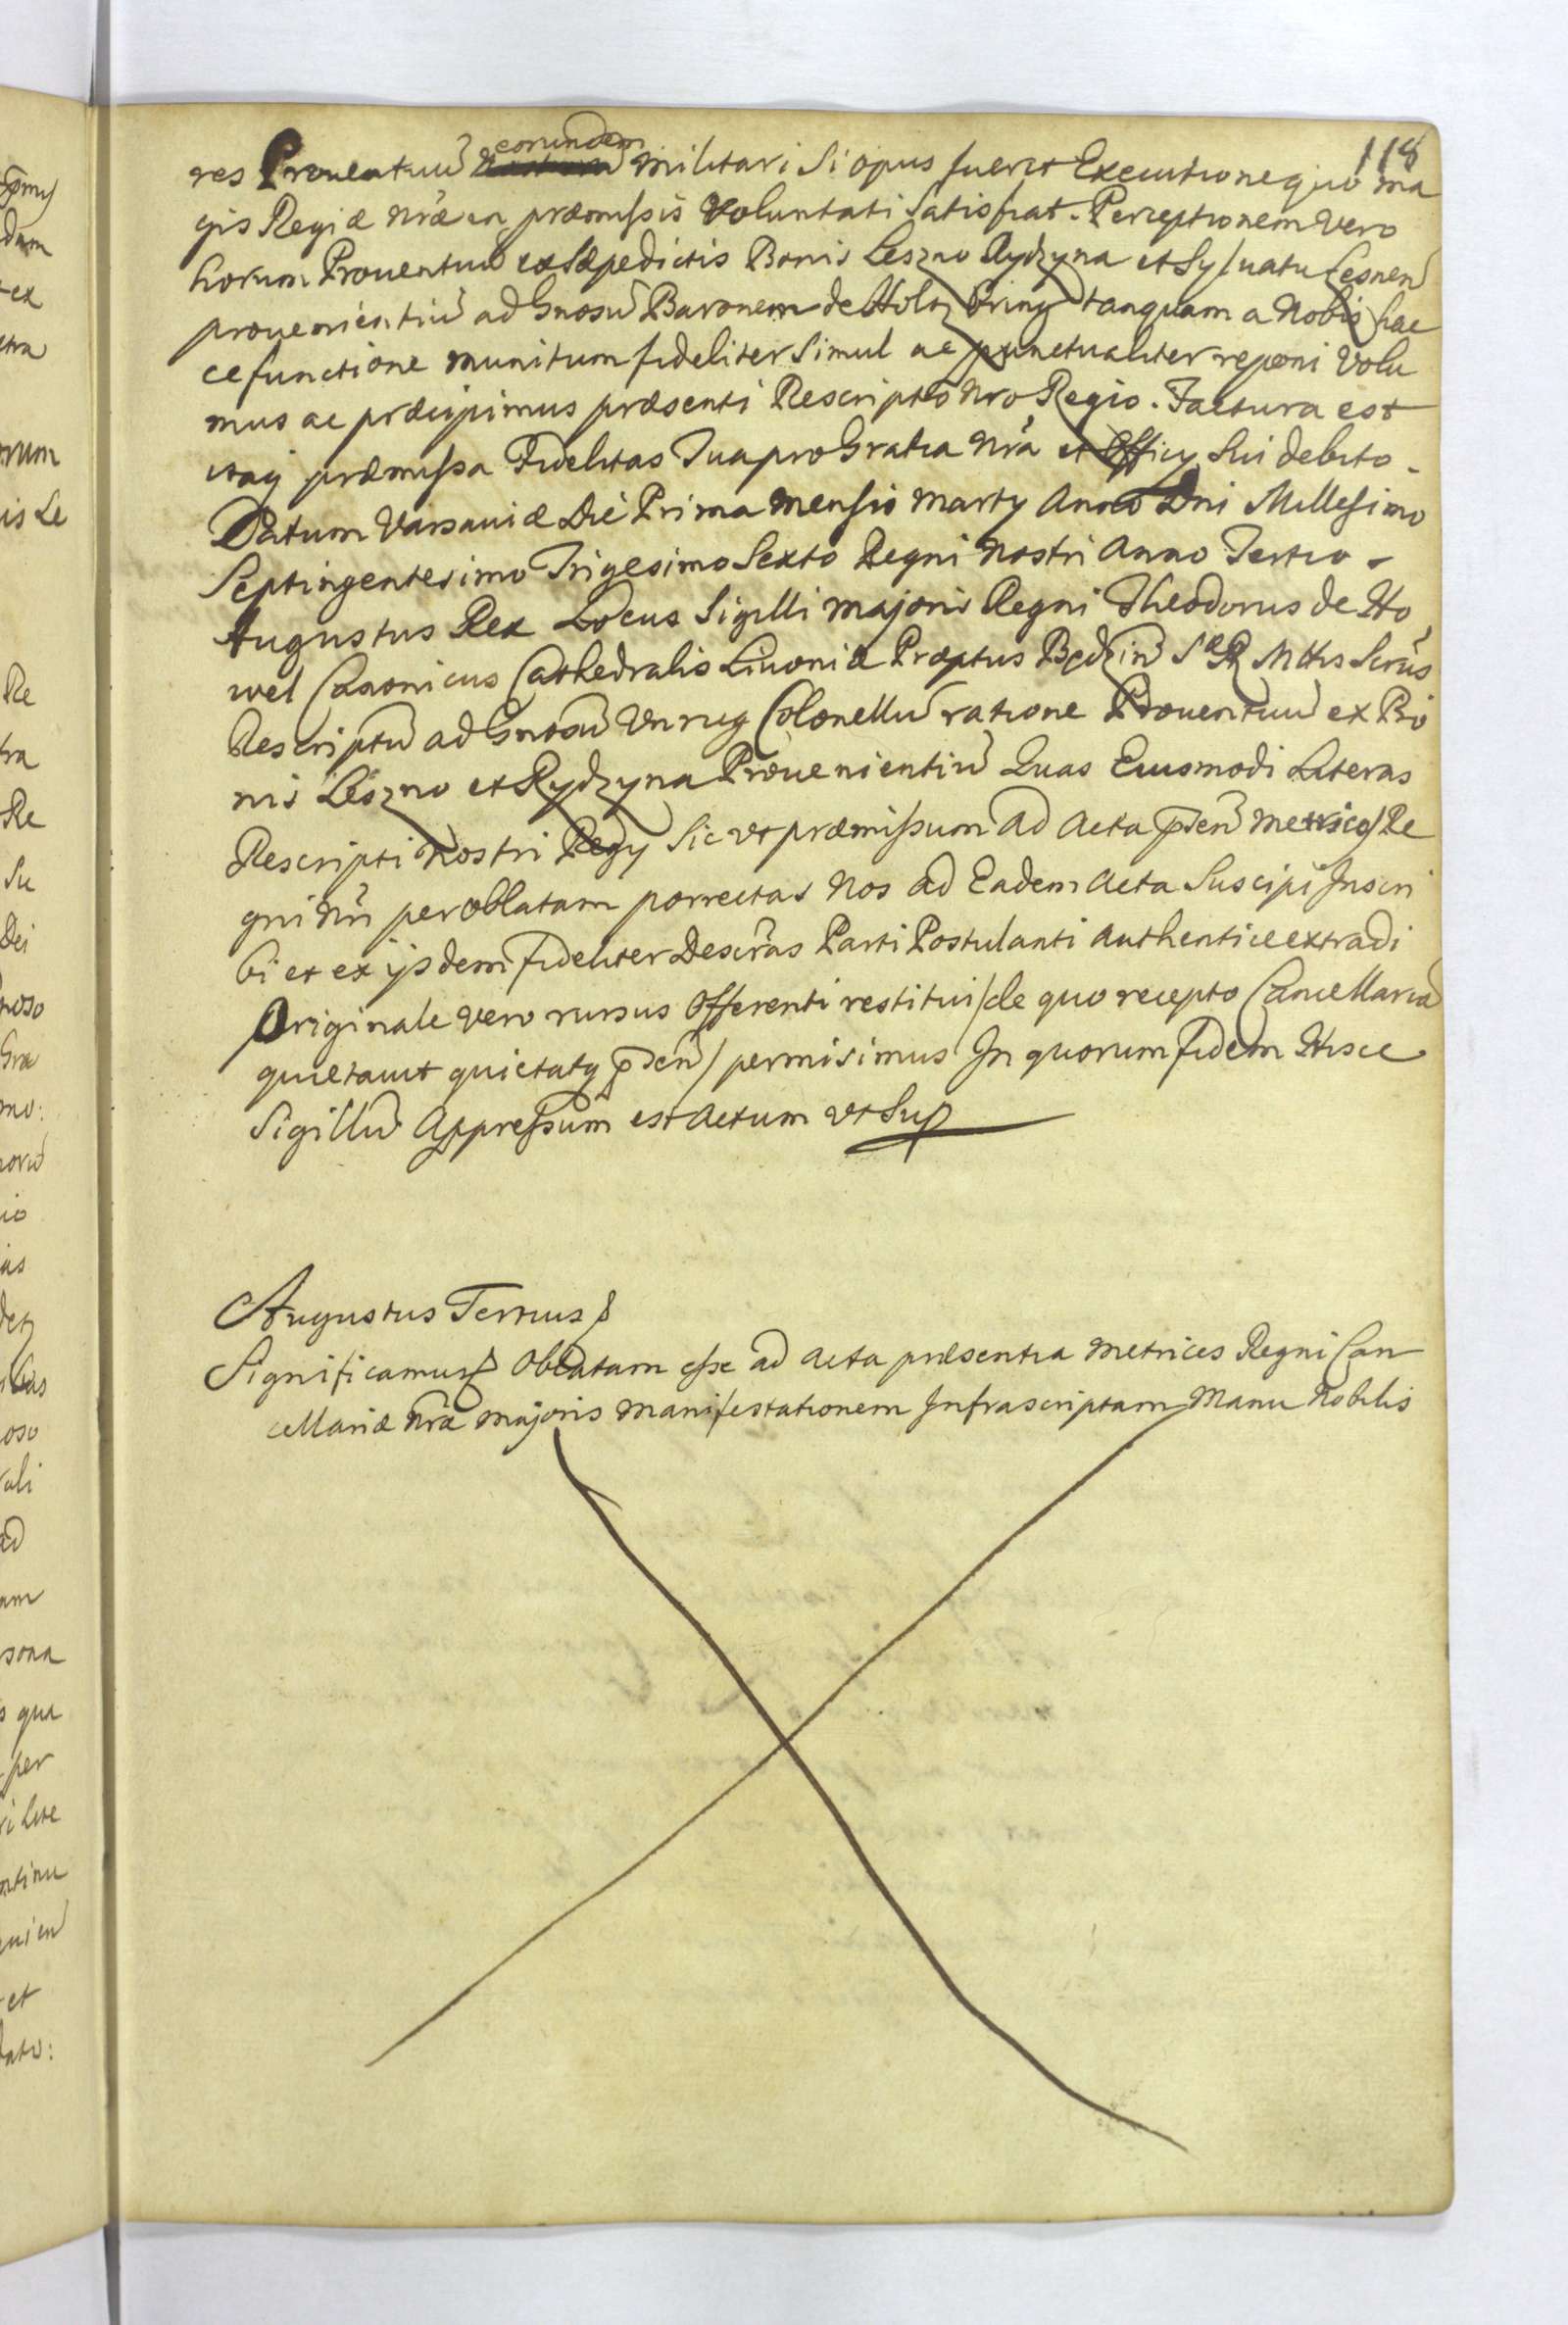 118
res Prouentuũ eorundem militari si opus fuerit Executione quo ma
gis Regiæ nr̃æ in præmissis voluntati satisfiat. Perceptionem vero
horum Prouentuũ ex sæpedictis Bonis Leszno Rydzyna et Sylvatu Lesnen̄
prouenientiũ ad Gnosũ Baronem de Holtz Bring tanquam a Nobis hac
ce functione munitum fideliter simul ac punctualiter reponi volu
mus ac præcipimus præsenti Rescripto nro Regio. Factura est
itaq præmissa Fidelitas Tua pro Gratia nr̃a et Officy sui debito.
Datum Varsauiæ Die Prima mensis Marty Anno Dni Millesimo
Septingentesimo Trigesimo Sexto Regni nostri Anno Tertio.
Augustus Rex Locus Sigilli majoris Regni Theodorus de Ho
wel Canonicus Cathedralis Liuoniæ Præptus Będzin̄ S R Mttis Secrũs
Rescriptũ ad Gnosũ Unrug Colonellũ ratione Prouentuũ ex Bo
nis Leszno et Rydzyna Prouenientiũ Quas Eiusmodi Literas
Rescripti Nostri Regy sic ut præmissum ad Acta p̄sen̄ Metrices Re
gni nr̃i per oblatam porrectas Nos ad Eadem Acta Suscipi Inscri
bi et ex ijsdem fideliter Descr̃as Parti Postulanti Authentice extradi
Originale vero rursus Offerenti restitui / de quo recepto Cancellariã
quietauit quietatq p̄sen̄ / permisimus In quorum fidem Hisce
Sigillũ Appressum est Actum ut Sup
Augustus Tertius
Significamus Oblatam esse ad Acta præsentia Metrices Regni Can
cellariæ nr̃æ majoris manifestationem Infrascriptam Manu Nobilis